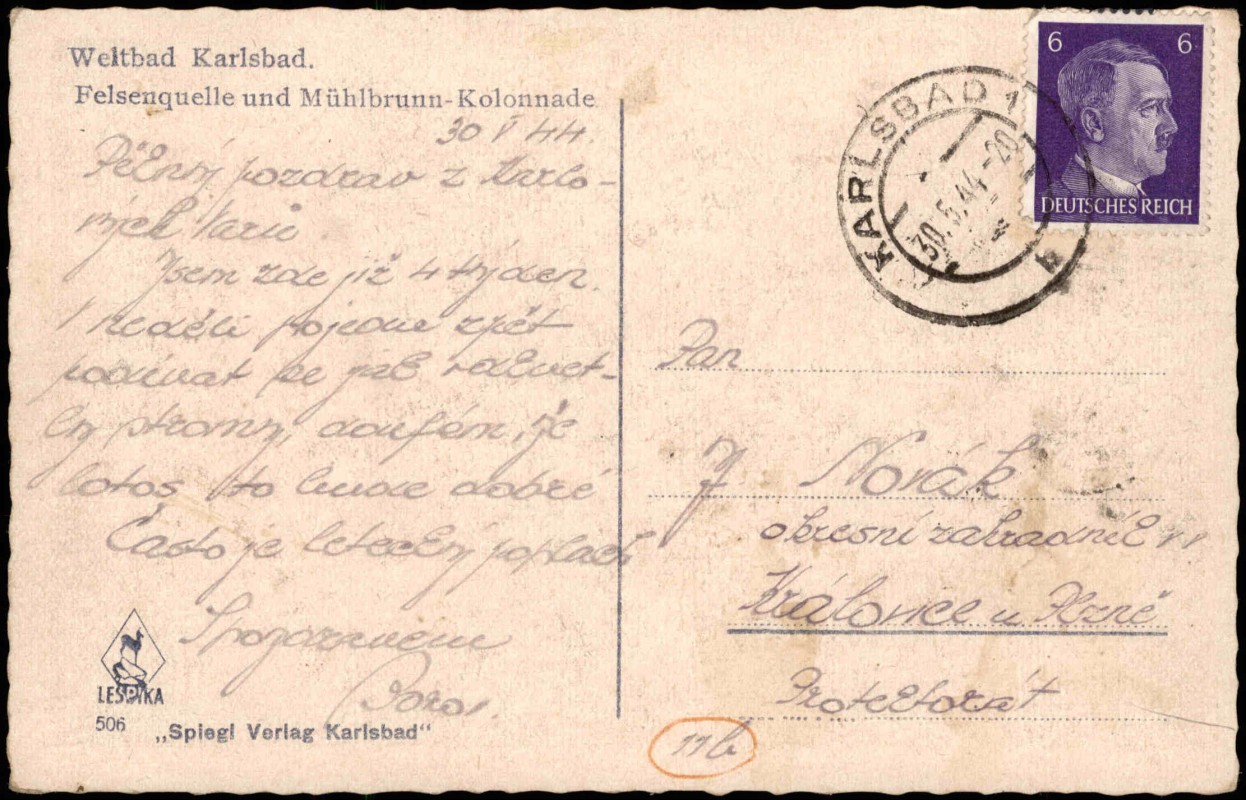 Weltbad Karlsbad.
Felsenquelle und Mühlbrunn-Kolonnade
30 V 44.
Pěkný pozdrav z Karlo-
vých Varů
Jsem zde již 4 týden.
V neděli pojedu zpět
podívat se jak rozkvet-
ly stromy, doufám, že
letos to bude dobré
Často je letecký poplach
S pozdravem
6 6
DEUTSCHES REICH
KARLSBAD 1
30.5.44.-20
b
Pan
J Novák
okresní zahradník v.v.
Královice u Plzně
Protektorát
LESPIKA
506 „Spiegl Verlag Karlsbad"
11b